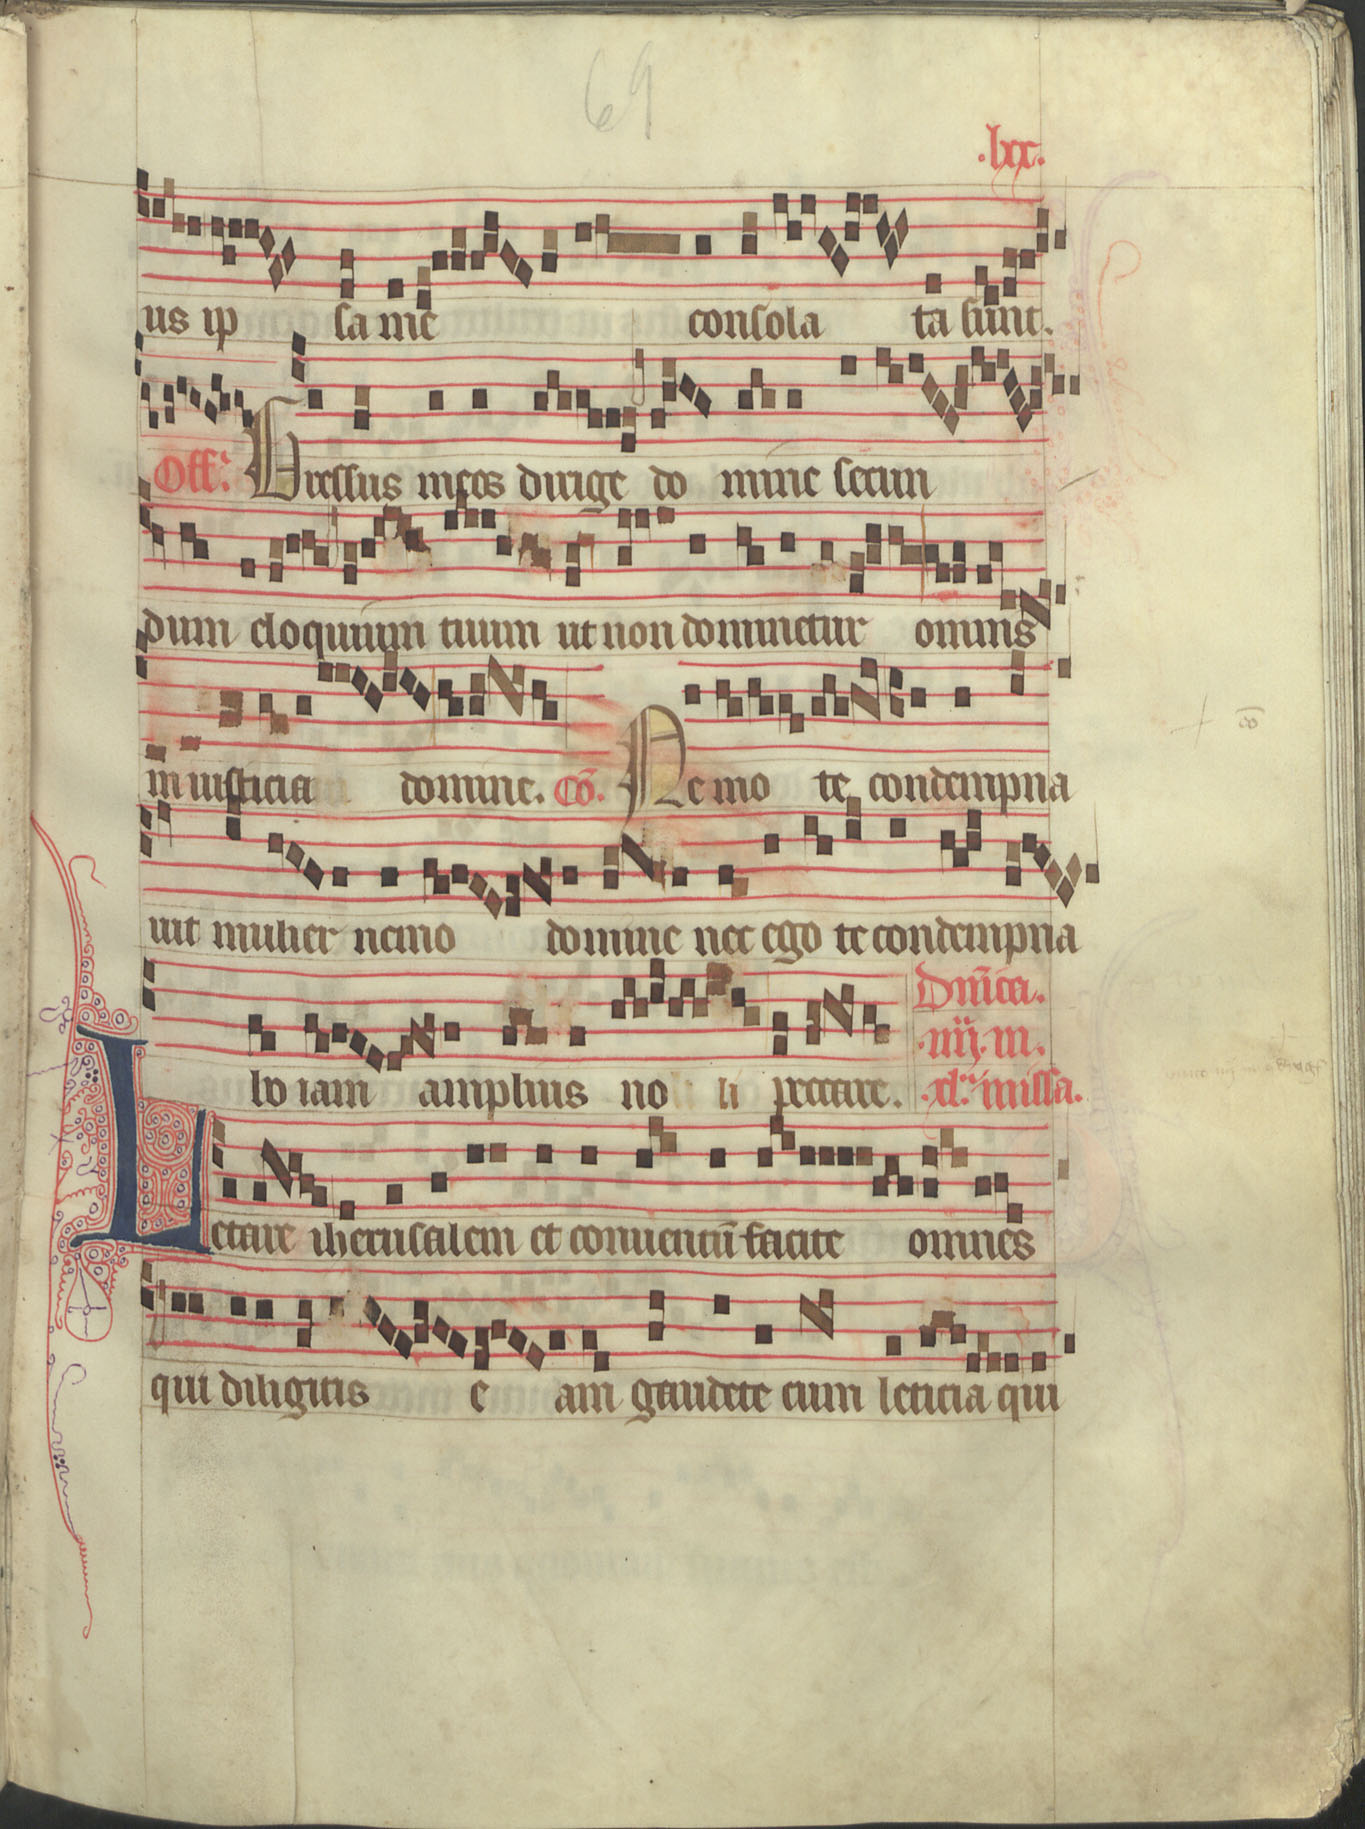 69
.lxx.
us ip sa me consola ta sunt.
Off. Gressus meos dirige do mine secun
dum eloquium tuum ut non dominetur omnis
iniusticia domine. Cō. Nemo te condempna
uit mulier nemo domine nec ego te condempna
Dn̄ica.
.iiij. in.
bo iam amplius no li peccare. .xl. missa.
Letare iherusalem et conuentū facite omnes
qui diligitis e am gaudete cum leticia qui